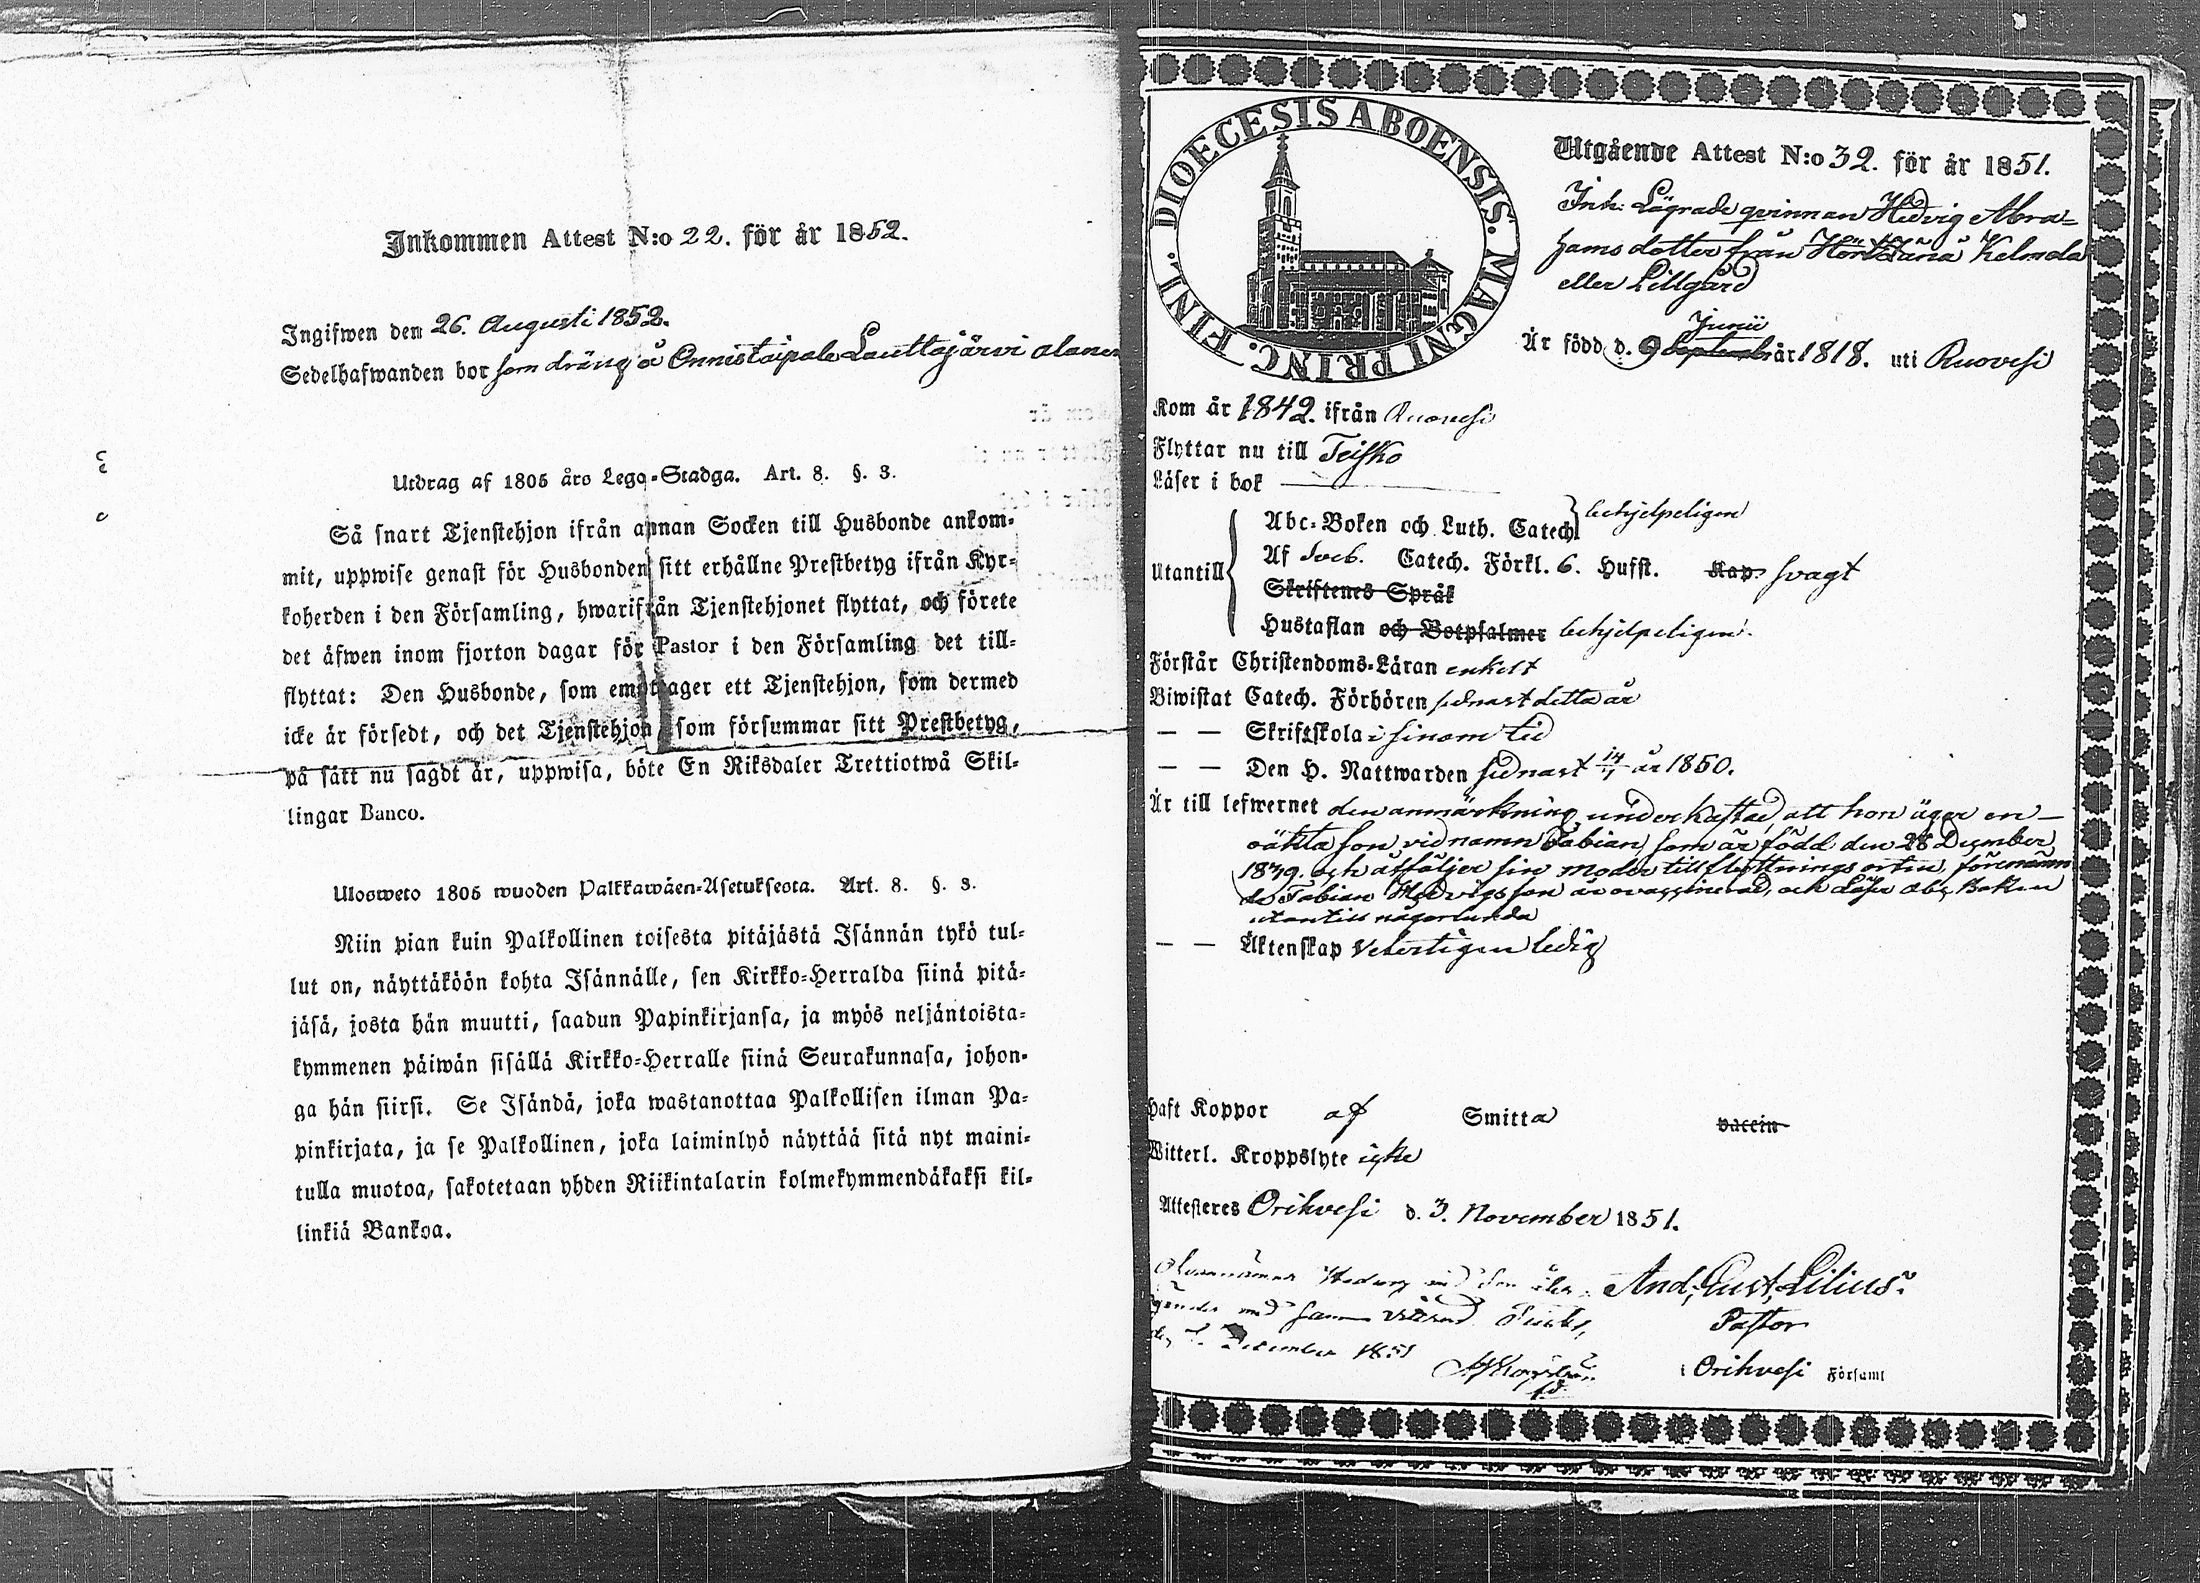 Inkommen Attest N:o 22. för år 1852.
Ingifwen den 26. Augusti 1852.
Sedelhafwanden bor som dräng å Onnistaipale Lauttajärvi alanen
Utdrag af 1805 års Lego-Stadga. Art. 8. §. 3.
Så snart Tjenstehjon ifrån annan Socken till Husbonde ankom-
mit, uppwise genast för Husbonden sitt erhållne Prestbetyg ifrån Kyr-
koherden i den Församling, hwarifrån Tjenstehjonet flyttat, och förete
det äfwen inom fjorton dagar för Pastor i den Församling det till-
flyttat: Den Husbonde, som emottager ett Tjenstehjon, som dermed
icke är försedt, och det Tjenstehjon som försummar sitt Prestbetyg,
på sätt nu sagdt är, uppwisa, böte En Riksdaler Trettiotwå Skil-
lingar Banco.
Ulosweto 1805 wuoden Palkkawäen-Asetuksesta. Art. 8. §. 3.
Niin pian kuin Palkollinen toisesta pitäjästä Isännän tykö tul-
lut on, näyttäköön kohta Isännälle, sen Kirkko-Herralda siinä pitä-
jäsä, josta hän muutti, saadun Papinkirjansa, ja myös neljäntoista-
kymmenen päiwän sisällä Kirkko-Herralle siinä Seurakunnasa, johon-
ga hän siirsi. Se Isändä, joka wastanottaa Palkollisen ilman Pa-
pinkirjata, ja se Palkollinen, joka laiminlyö näyttää sitä nyt maini-
tulla muotoa, sakotetaan yhden Riikintalarin kolmekymmendäkaksi kil-
linkiä Bankoa.
DIOECESIS ABOENSIS. MAGNI PRINC. FINL.
Utgående Attest N:o 32. för år 1851.
Inh: Lägrade qvinnan Hedvig Abra-
hams dotter från Kelmola
eller Lillgård
Junii
Är född d. 9 Septemb år 1818. uti Ruovesi
Kom år 1842. ifrån Ruovesi
Flyttar nu till Teisko
Läser i bok
Utantill
Abc-Boken och Luth. Catech behjelpeligen
Af Sveb. Catech. Förkl. 6. Hufst. Kap. svagt
Skriftenes Språk
Hustaflan och Botpsalmer behjelpeligen.
Förstår Christendoms-Läran enkelt
Biwistat Catech. Förhören sednast detta år
— — Skriftskola i sinom tid
— — Den H. Nattwarden sednast 14/ år 1850.
Är till lefwernet den anmärkning underkastad, att hon äger en
oäkta son vid namn Fabian, som är född den 28 December
1839. och åtföljer sin moder till flyttnings orten, förenämn
de Fabian Hedvigsson är ovaccinerad, och Läser abc Boken
utantill någorlunda
— — Äktenskap Veterligen ledig
Haft Koppor af Smitta vaccin
Witterl. Kroppslyte icke
Attesteres Orihvesi d. 3. November 1851.
And: Gust. Lilius.
Pastor
i Orihvesi Församl
Hedvig
med
December 1851